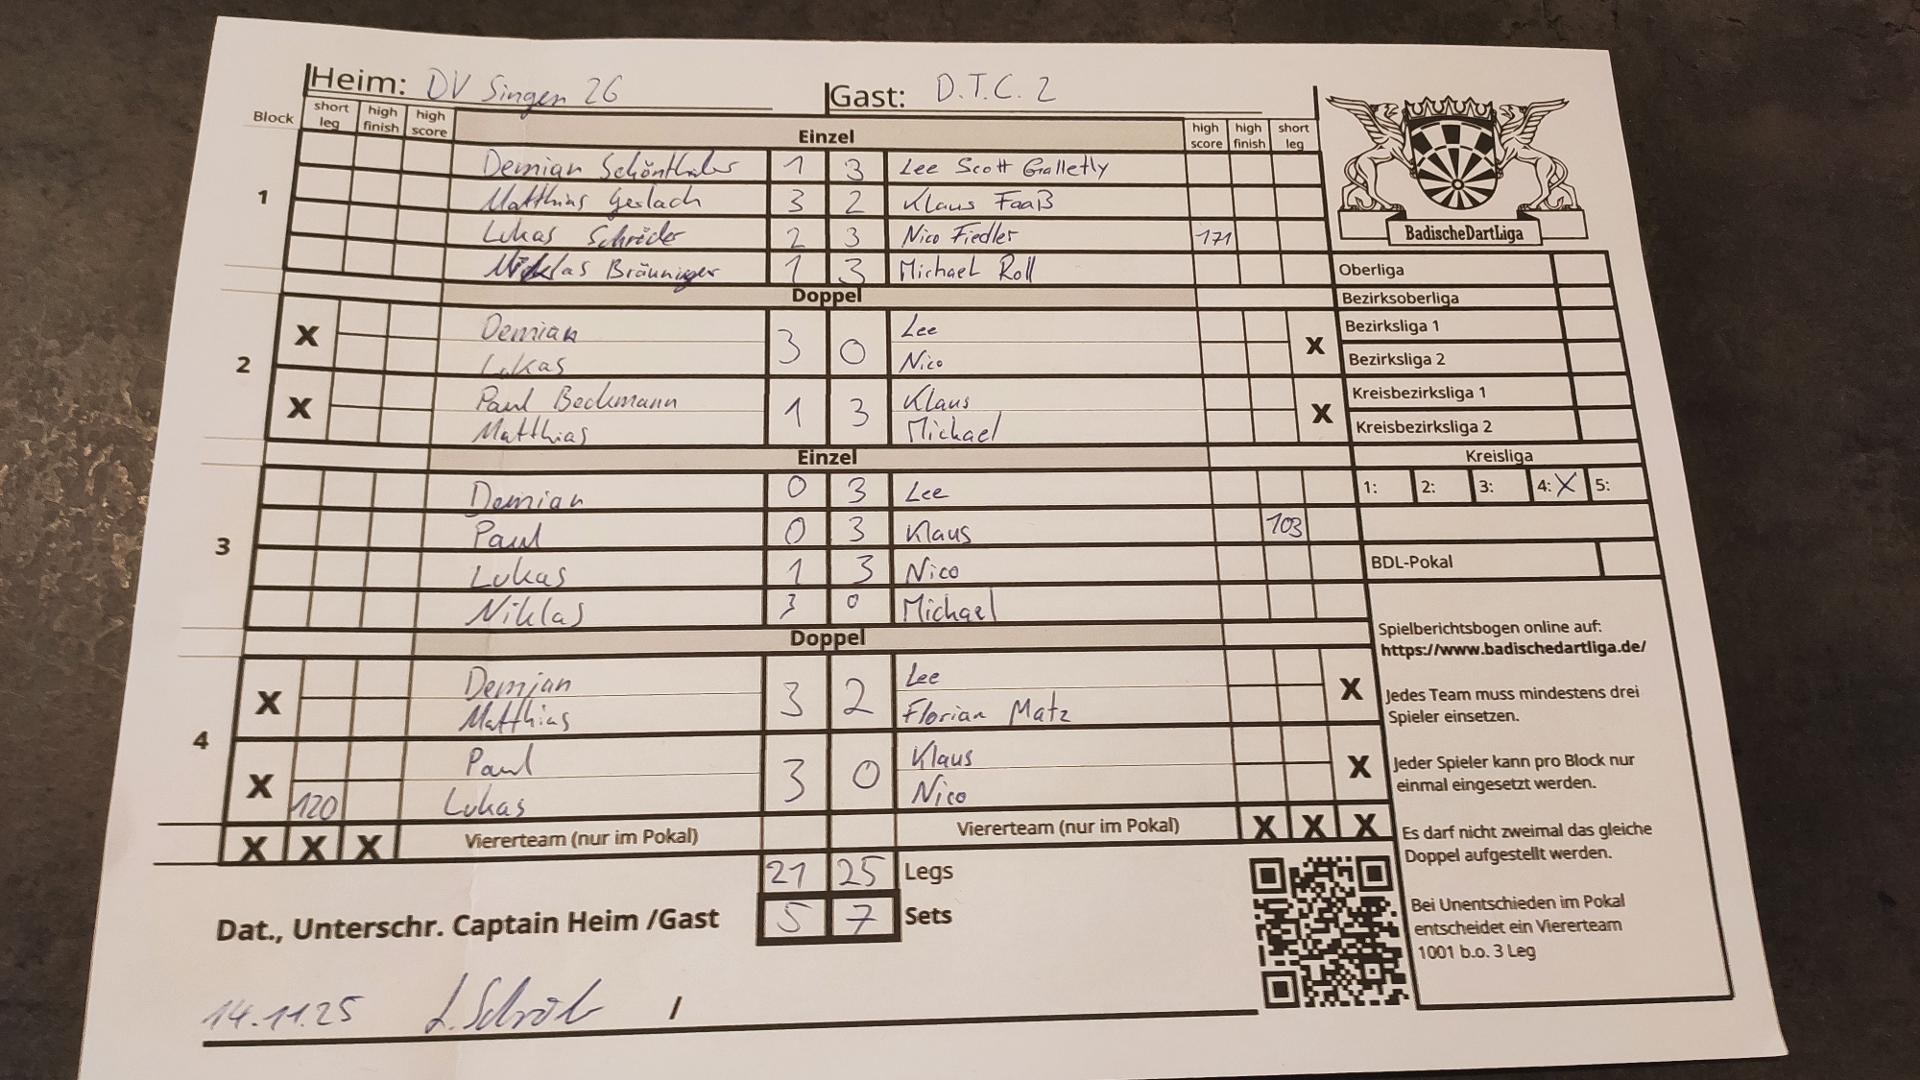 Heim: DV Singen 26 Gast: D.T.C. 2
Block short leg high finish high score Einzel high score high finish short leg
1
Demian Schönthaler 1 3 Lee Scott Galletly
Matthias Gerlach 3 2 Klaus Faaß
Lukas Schröder 2 3 Nico Fiedler 171
Niklas Bräuniger 1 3 Michael Roll
Doppel
2
X Demian 3 0 Lee X
Lukas Nico
X Paul Beckmann 1 3 Klaus X
Matthias Michael
Einzel
3
Demian 0 3 Lee
Paul 0 3 Klaus 103
Lukas 1 3 Nico
Niklas 3 0 Michael
Doppel
4
X Demian 3 2 Lee X
Matthias Florian Matz
X Paul 3 0 Klaus X
120 Lukas Nico
X X X Viererteam (nur im Pokal) Viererteam (nur im Pokal) X X X
21 25 Legs
5 7 Sets
Dat., Unterschr. Captain Heim /Gast
14.11.25 L. Schröder /
BadischeDartLiga
Oberliga
Bezirksoberliga
Bezirksliga 1
Bezirksliga 2
Kreisbezirksliga 1
Kreisbezirksliga 2
Kreisliga
1: 2: 3: 4: X 5:
BDL-Pokal
Spielberichtsbogen online auf:
https://www.badischedartliga.de/
Jedes Team muss mindestens drei
Spieler einsetzen.
Jeder Spieler kann pro Block nur
einmal eingesetzt werden.
Es darf nicht zweimal das gleiche
Doppel aufgestellt werden.
Bei Unentschieden im Pokal
entscheidet ein Viererteam
1001 b.o. 3 Leg